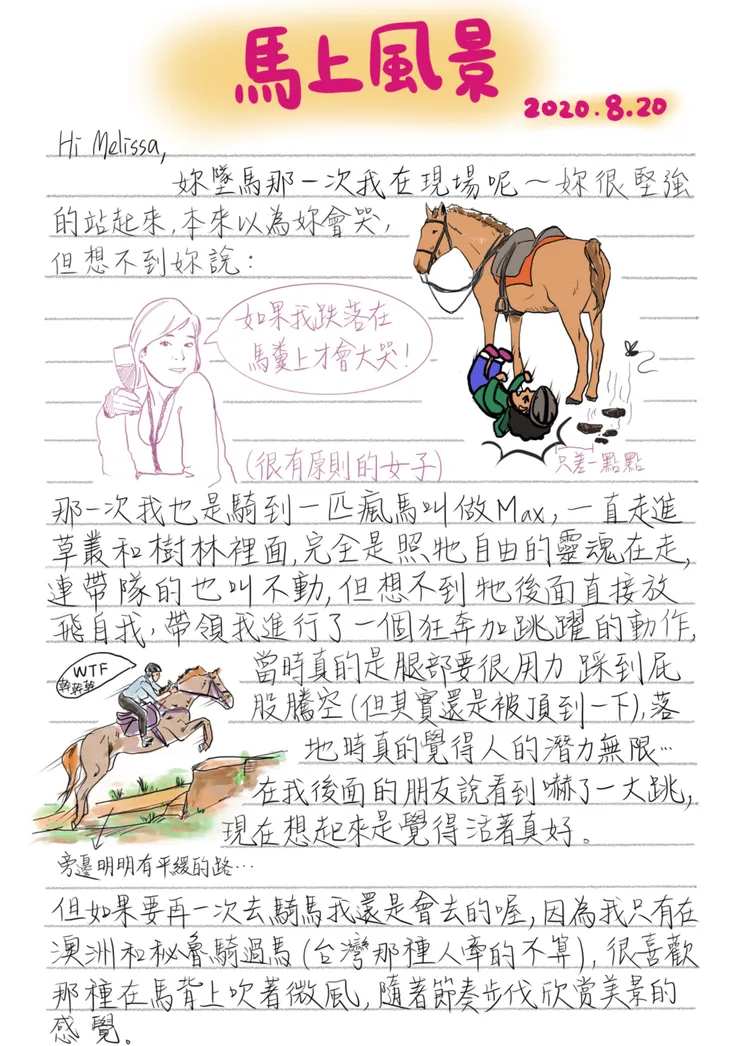 馬上風景
2020.8.20
Hi Melissa,
妳墜馬那一次我在現場呢～妳很堅強
的站起來,本來以為妳會哭,
但想不到妳說:
如果我跌落在
馬糞上才會大哭!
(很有原則的女子)
只差一點點
那一次我也是騎到一匹瘋馬叫做Max,一直走進
草叢和樹林裡面,完全是照牠自由的靈魂在走,
連帶隊的也叫不動,但想不到牠後面直接放
飛自我,帶領我進行了一個狂奔加跳躍的動作,
當時真的是腿部要很用力 踩到屁
股騰空(但其實還是被頂到一下),落
地時真的覺得人的潛力無限…
在我後面的朋友說看到嚇了一大跳,
現在想起來是覺得活著真好。
WTF
幹幹幹
旁邊明明有平緩的路…
但如果要再一次去騎馬我還是會去的喔,因為我只有在
澳洲和秘魯騎過馬(台灣那種人牽的不算),很喜歡
那種在馬背上吹著微風,隨著節奏步伐欣賞美景的
感覺。